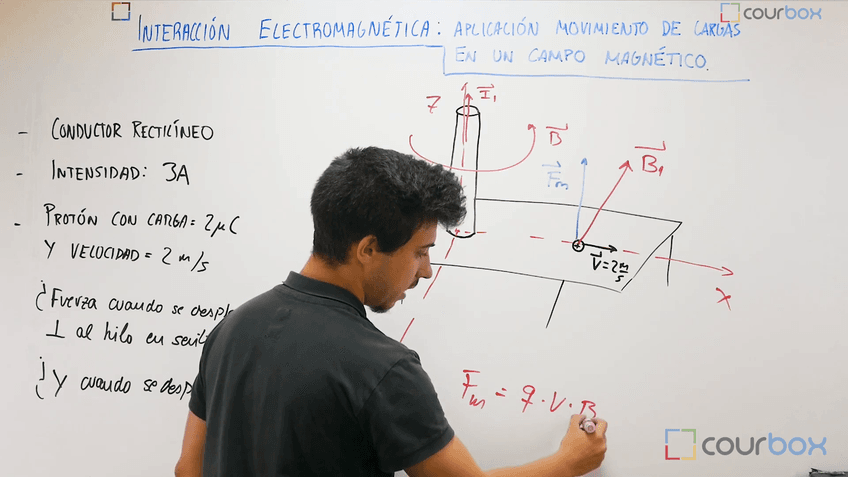 INTERACCIÓN ELECTROMAGNÉTICA: APLICACIÓN MOVIMIENTO DE CARGAS
EN UN CAMPO MAGNÉTICO.
courbox
- CONDUCTOR RECTILÍNEO
- INTENSIDAD: 3A
- PROTÓN CON CARGA = 2μC
Y VELOCIDAD = 2 m/s
¿Fuerza cuando se despl
⊥ al hilo en senti
¿Y cuando se desp
Z
I₁
B
Fm
B₁
V=2m/s
X
Fm = q · V · B
courbox